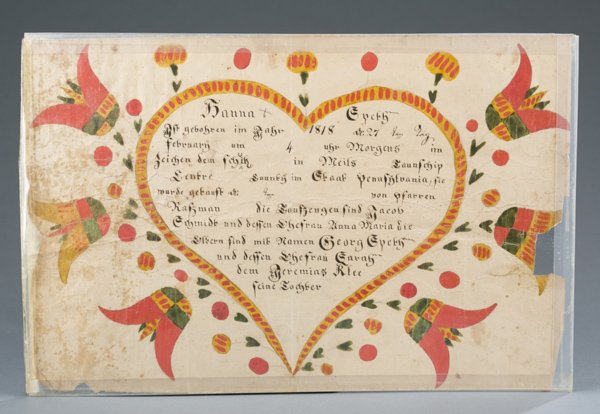 Hanna Speth
Ist gebohren im Jahr 1818 d: 27 Tag
februarÿ um 4 uhr Morgens im
Zeichen dem schütz in Meils Taunschip
Centre Countÿ im Staat Penusÿlvania, sie
wurde getauft d: von pfarrer
Raszman die Taufzeugen sind Jacob
Schmidt und dessen Ehefrau Anna Maria die
Eltern sind mit Namen Georg Speth
und dessen Ehefrau Sarah
dem Jeremias Klee
seine Tochter